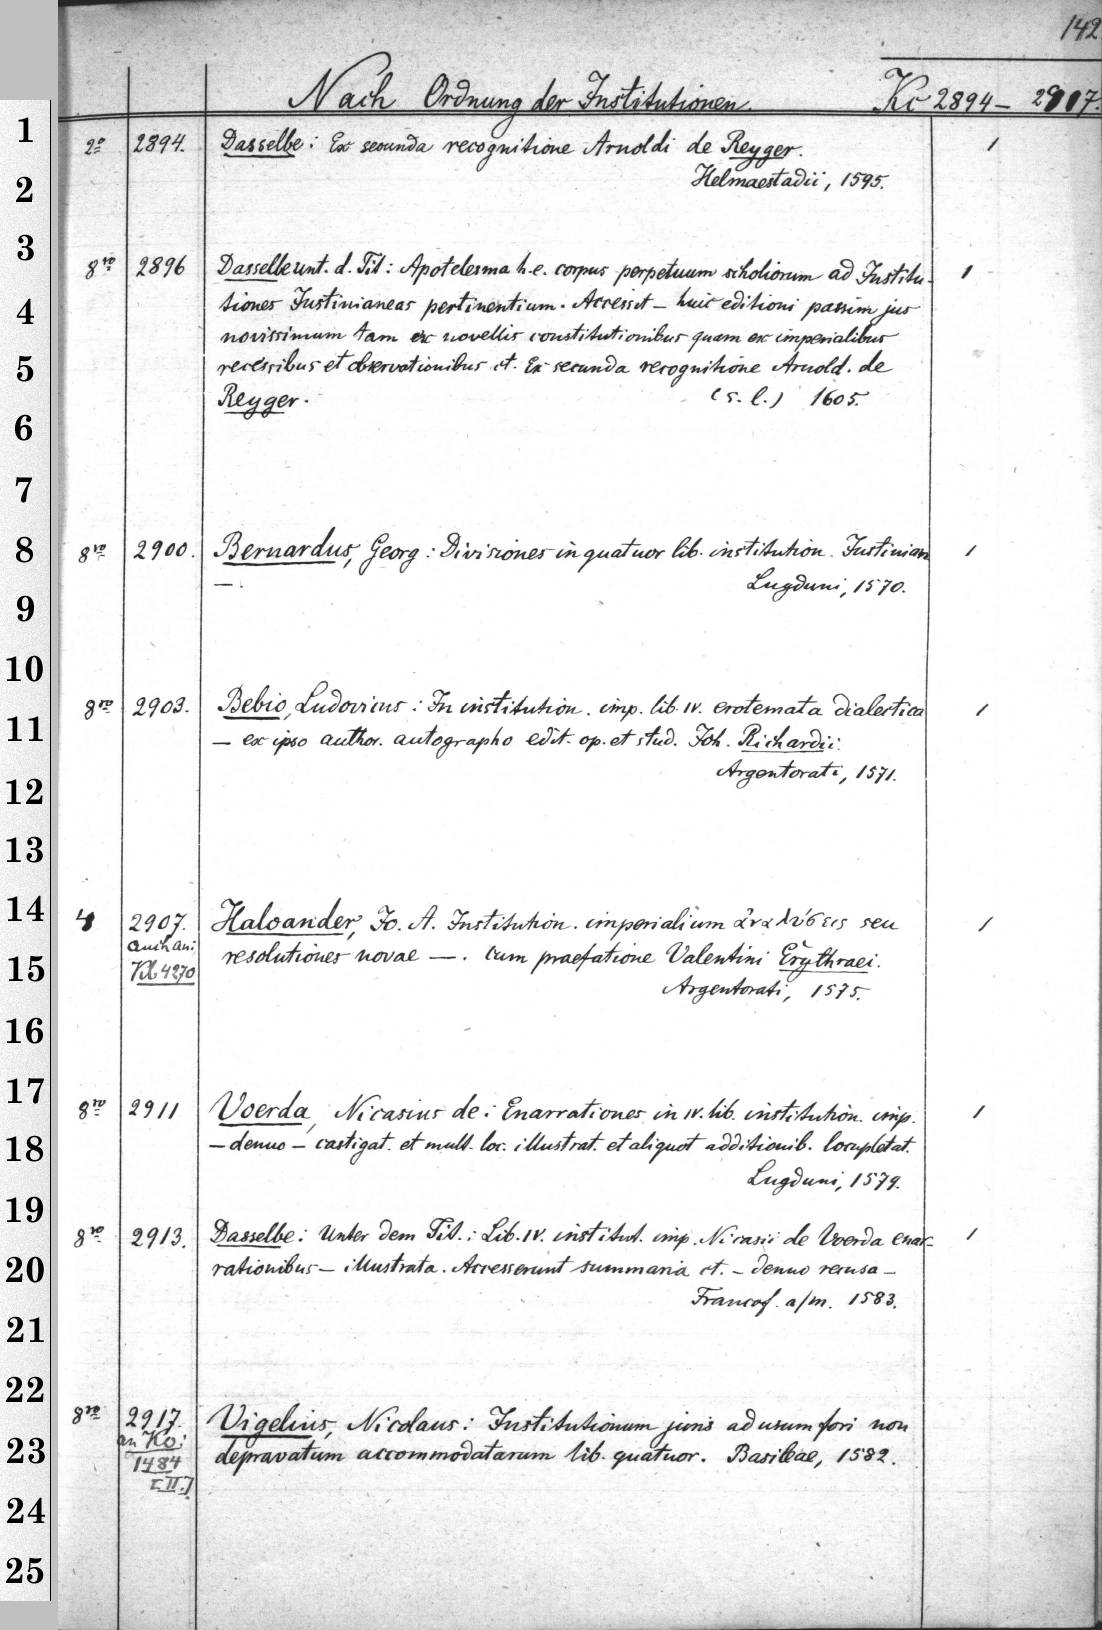 142
Nach Ordnung der Institutionen. Kc 2894– 2917.
1
2º 2894. Dasselbe: Ex secunda recognitione Arnoldi de Reyger. 1
2 Helmaestadii, 1595.
3
8vo 2896 Dasselbe unt. d. Tit: Apotelesma h.e. corpus perpetuum scholiorum ad Institu- 1
4 tiones Justinianeas pertinentium. Accessit – huic editioni passim jus
novissimum tam ex novellis constitutionibus quam ex imperialibus
5 recessibus et observationibus ct. Ex secunda recognitione Arnold. de
Reyger. (s. l.) 1605.
6
7
8 8vo 2900. Bernardus, Georg: Divisiones in quatuor lib. institution. Justinian 1
—. Lugduni, 1570.
9
10
8vo 2903. Bebio, Ludovicus: In institution. imp. lib. IV. erotemata dialectica 1
11 — ex ipso author. autographo edit. op. et stud. Joh. Richardii.
Argentorati, 1571.
12
13
14 4 2907. Haloander, Jo. A. Institution. imperialium ἀναλύσεις seu 1
auch an:
15 resolutiones novae —. cum praefatione Valentini Erythraei.
4270
Argentorati, 1575.
16
17
8vo 2911 Voerda, Nicasius de: Enarrationes in IV. lib. institution. imp. 1
18 — denuo — castigat. et mult. loc. illustrat. et aliquot additionib. locupletat.
Lugduni, 1579.
19
8vo 2913. Dasselbe: Unter dem Tit.: Lib. IV. institut. imp. Nicasii de Voerda enar- 1
20 rationibus — illustrata. Accesserunt summaria ct. — denuo recusa —
Francof. a/m. 1583.
21
22
8vo 2917. Vigelius, Nicolaus: Institutionum juris ad usum fori non
an Ko:
23 depravatum accommodatarum lib. quatuor. Basileae, 1582.
1484
[II.]
24
25